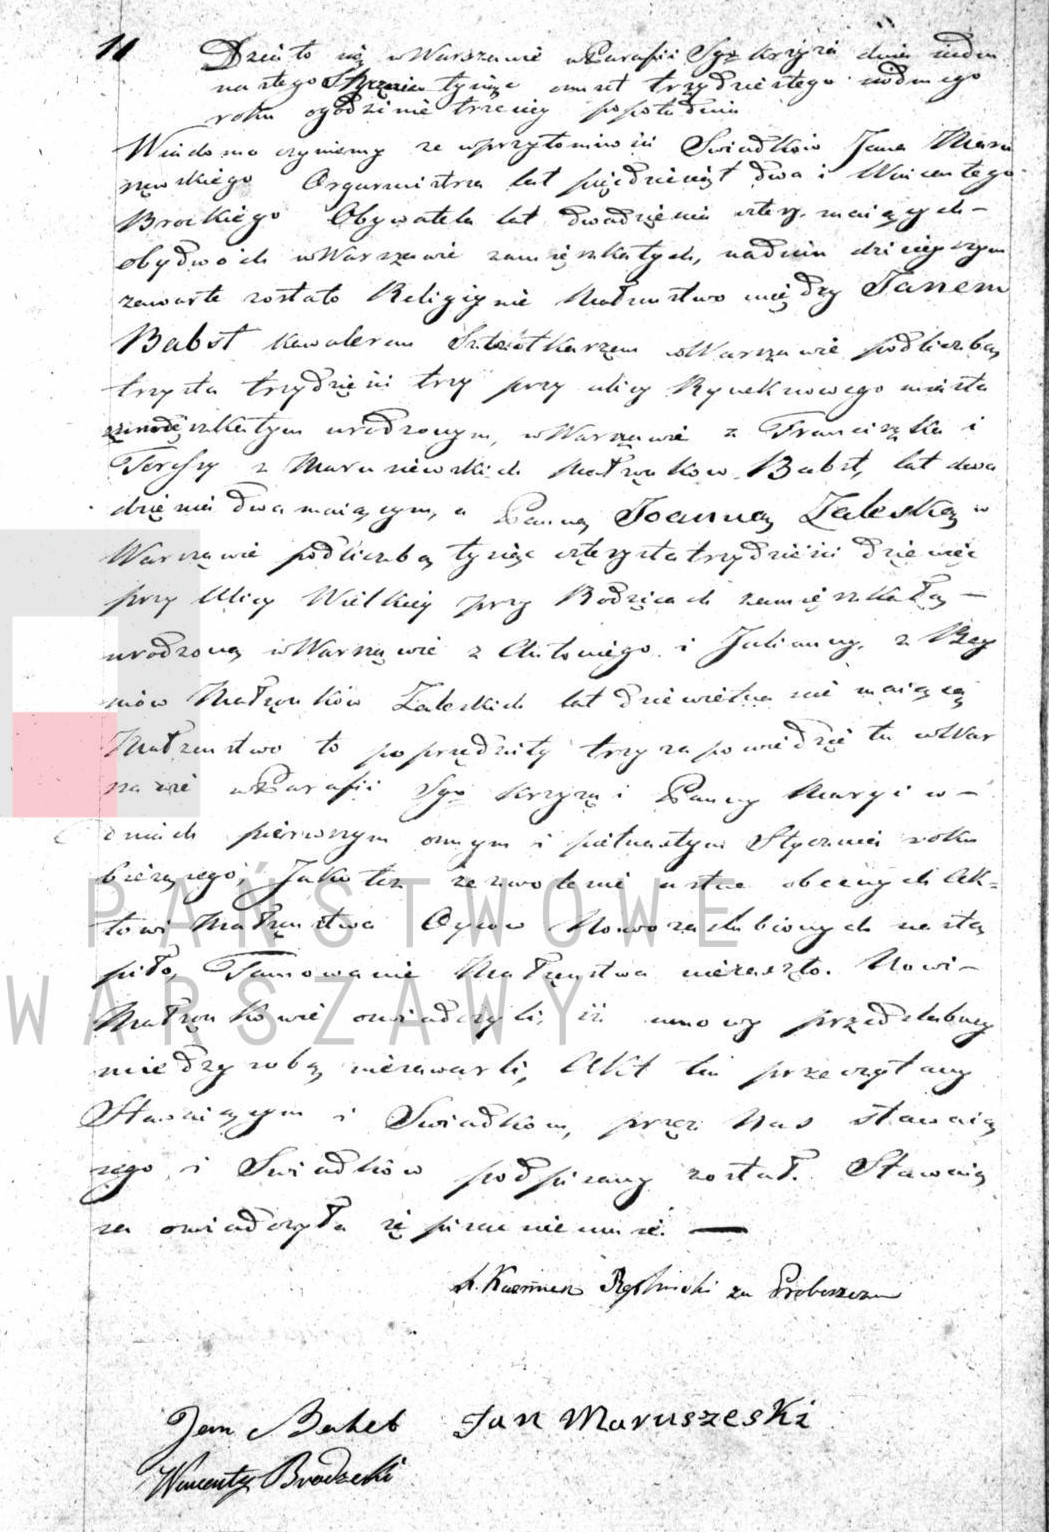 11
Działo się w Warszawie w Parafii Sgo Krzyża dnia iedenastego Stycznia tysiąc ośmset trzydziestego siódmego
roku o godzinie trzeciey popołudniu
Wiadomo czynimy że w przytomności Świadków Jana Maru
szewskiego Organmistrza lat pięćdziesiąt dwa i Wincentego
Brockiego Obywatela lat dwadzieścia cztery maiących –
obydwóch w Warszawie zamieszkałych, na dniu dzisieyszym
zawarte zostało Religiyne Małżeństwo między Janem
Babst kawalerem w Warszawie pod liczbą
trzysta trzydzieści trzy przy ulicy Rynek nowego miasta
zamieszkałym urodzonym w Warszawie z Franciszka i
Teressy z Maruszewskich Małżonków Babst, lat dwa
dzieścia dwa maiącym, a Panną Joanną Zaleską w
Warszawie pod liczbą tysiąc czterysta trzydzieści dziewięć
przy Ulicy Wielkiey przy Rodzicach zamieszkałą –
urodzoną w Warszawie z Antoniego i Julianny z
Małżonków Zaleskich lat dziewietnaście maiącą
Małżeństwo to poprzedziły trzy zapowiedzie tu w War
szawie w Parafii Sgo Krzyża i Panny Maryi w –
dniach pierwszym osmym i piętnastym Stycznia roku
bieżącego, Jako też zezwolenie ustne obecnych Ak=
towi Małżeństwa Oyców Nowozaślubionych nastą
piło, Tamowanie Małżeństwa niezaszło. Nowi –
Małżonkowie oświadczyli, iż umowy przedślubney
między sobą niezawarli, Akt ten przeczytany
Stawaiącym i Świadkom, przez Nas stawaią
cego i Świadków podpisany został. Stawaią
ca oświadczyła iż pisać nieumie. —
X. Kazimierz za Proboszcza
Jan Babst Jan Maruszeski
Wincenty Brodzcki
PAŃSTWOWE
WARSZAWY